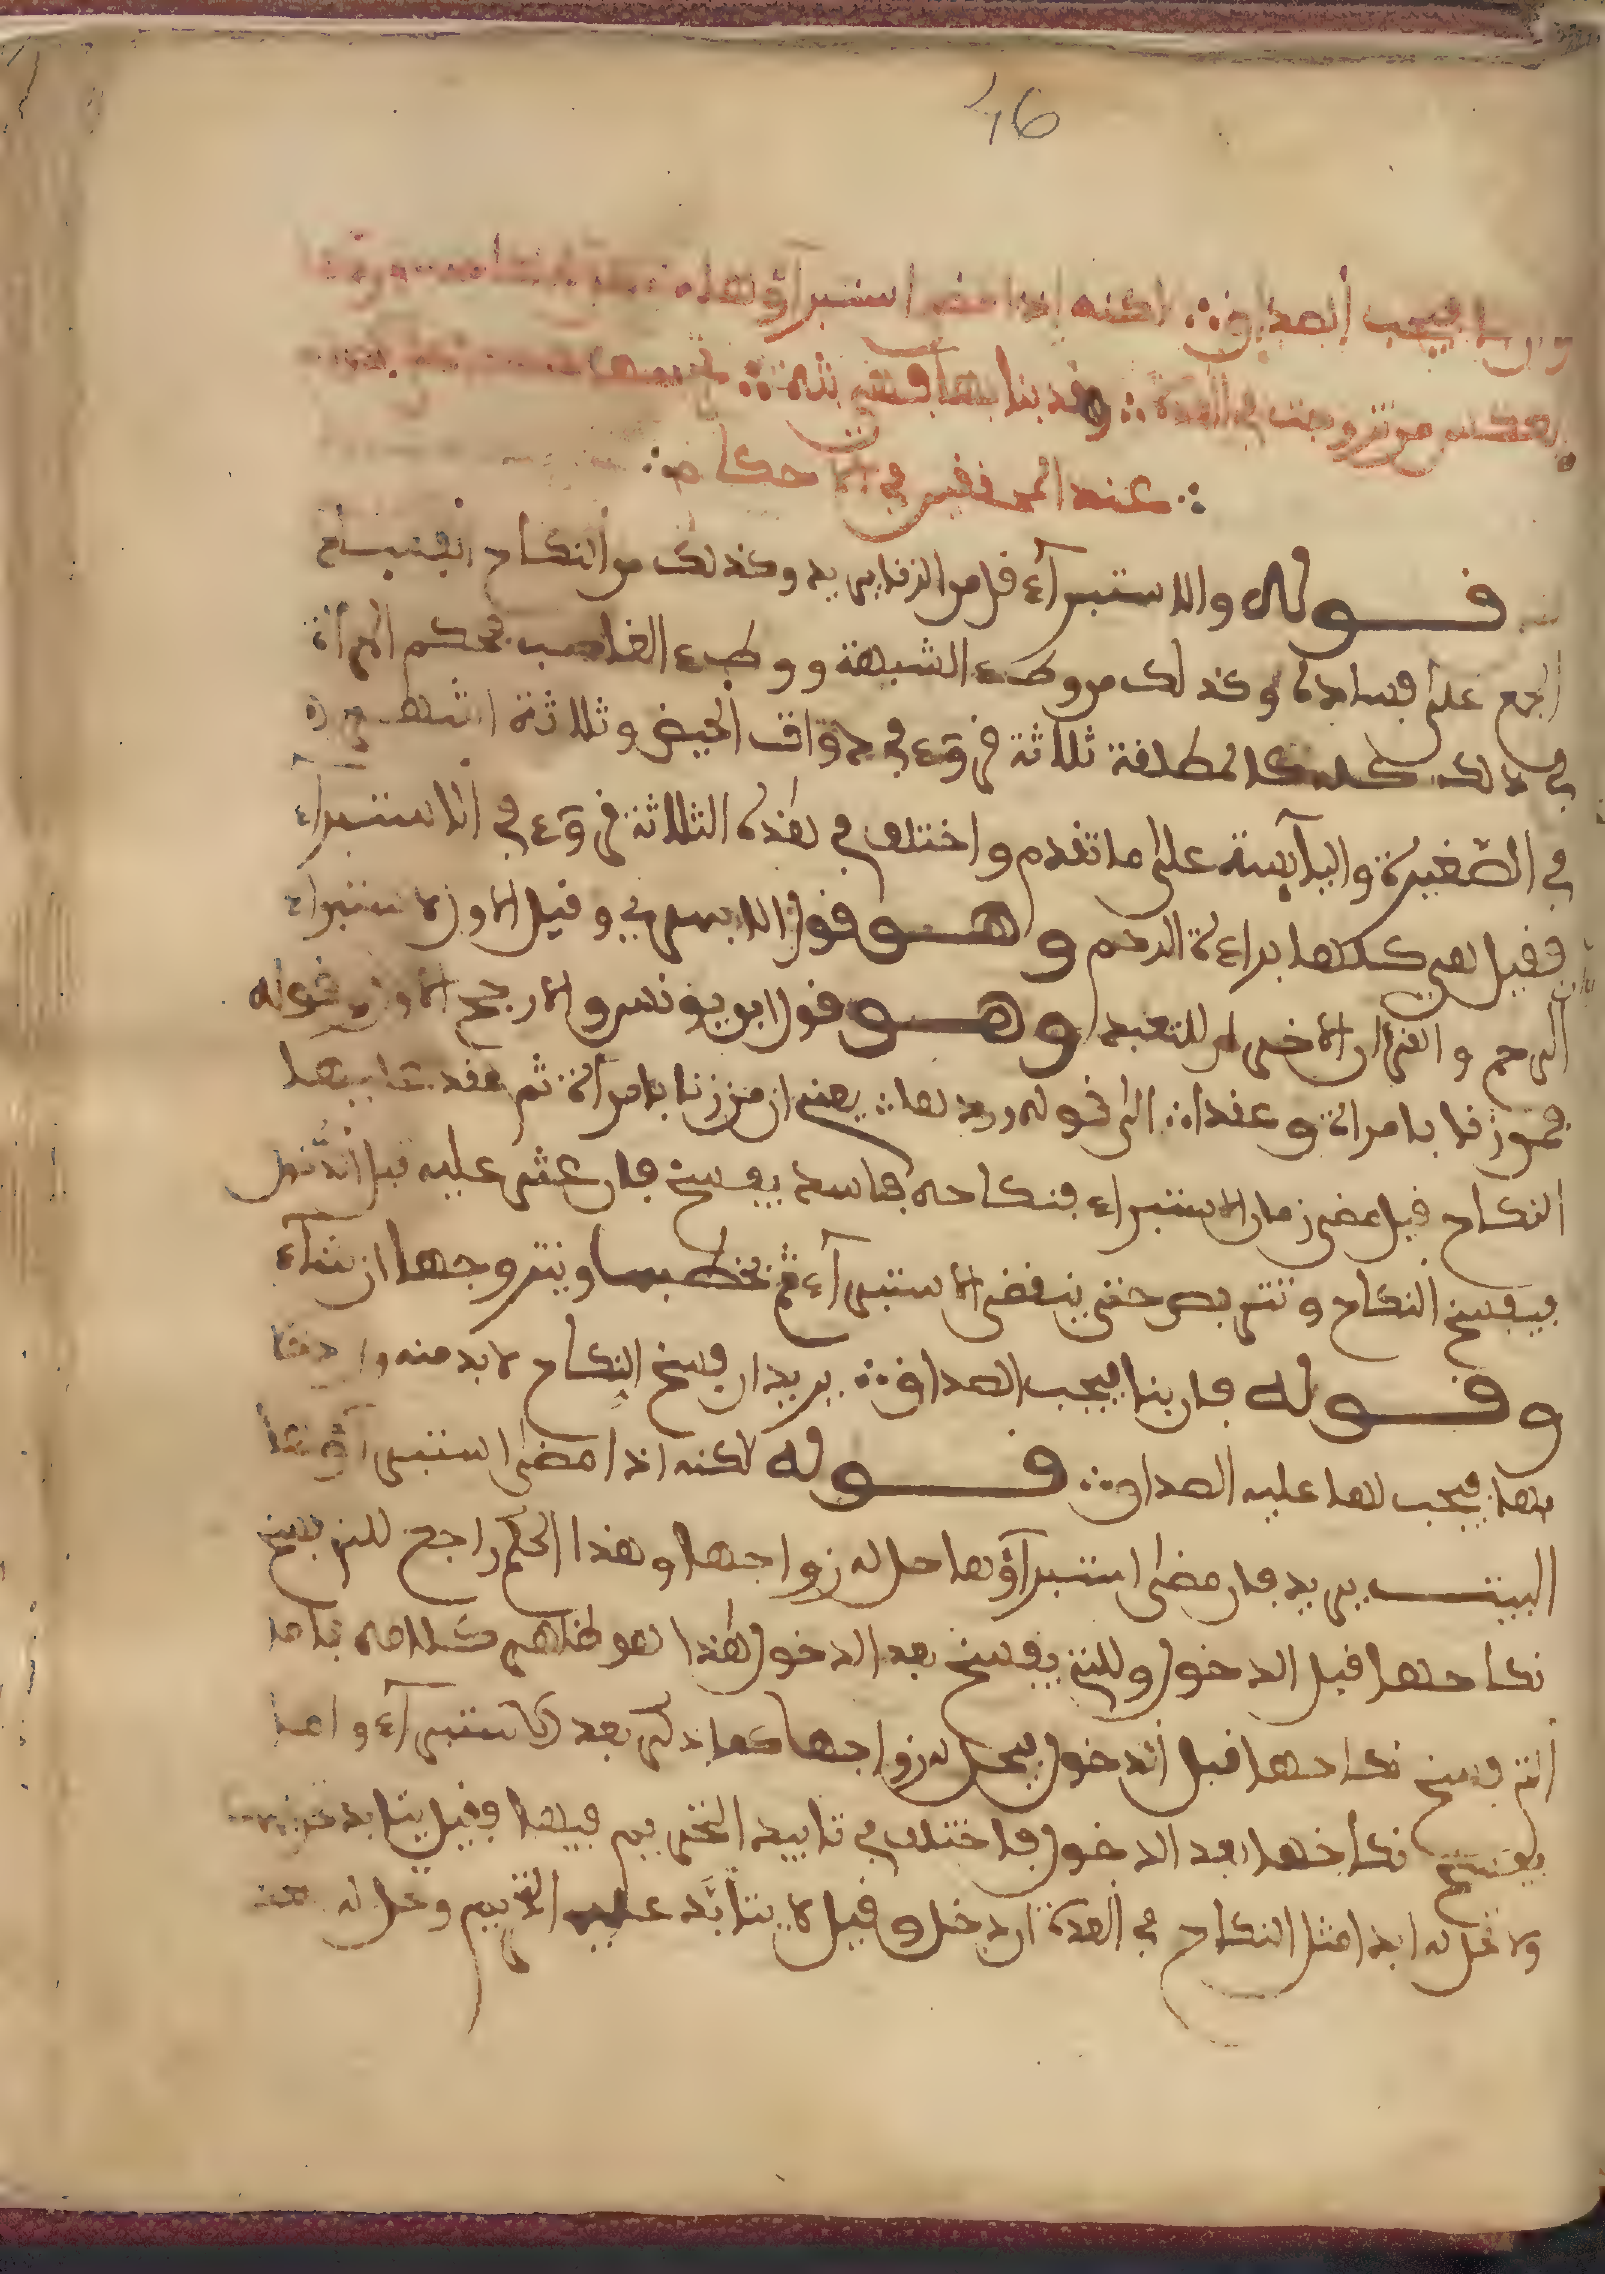 46
وان بنا فيجب الصداق ∴ لكنه اذا مضى استبراؤها
بعكس من تزوجت في العدة ∴ وقد بنا بها
∴ عند المحققين في الاحكام ∴
قوله والاستبراء قل من الزنا يريد وكذلك من النكاح
اجمع على فساده وكذلك من وطء الشبهة ووطء الغاصب فحكم المرأة
في ذلك كله كالمطلقة ثلاثة قروء في ذوات الحيض وثلاثة اشهر
في الصغيرة واليآيسة على ما تقدم واختلف في هذه الثلاثة قروء في الاستبرآء
فقيل هي كلها براءة الرحم وهو قول الابهري وقيل الاول لاستبراء
الرحم والقرءان الاخران للتعبد وهو قول ابن يونس والارجح الاول قوله
فمن زنا بامراة وعقدا ∴ الى قوله ∴ يعني ان من زنا بامرأة ثم عقد عليها
النكاح قبل مضى زمان الاستبراء فنكاحه فاسد يفسخ فان عثر عليه قبل الدخول
فيفسخ النكاح وتتربص حتى ينقضى الاستبرآء ثم يخطبها ويتزوجها ان شاء
وقوله فان بنا فيجب الصداق ∴ يريد ان فسخ النكاح لا بد منه
بها فيجب لها عليه الصداق ∴ قوله لكنه اذا مضى استبرآؤها
البيت يريد فان مضى استبرآؤها حل له زواجها وهذا الحكم راجع للتي يفسخ
نكاحها قبل الدخول وللتي يفسخ بعد الدخول هذا هو ظاهر كلامه فاما
التي فسخ نكاحها قبل الدخول فيحل له زواجها كما ذكر بعد الاستبرآء واما
يفسخ نكاحها بعد الدخول فاختلف في تابيد التحريم فيها فقيل يتابد
ولا تحل له ابدا مثل النكاح في العدة ان دخل وقيل لا يتأبد عليه التحريم وتحل له